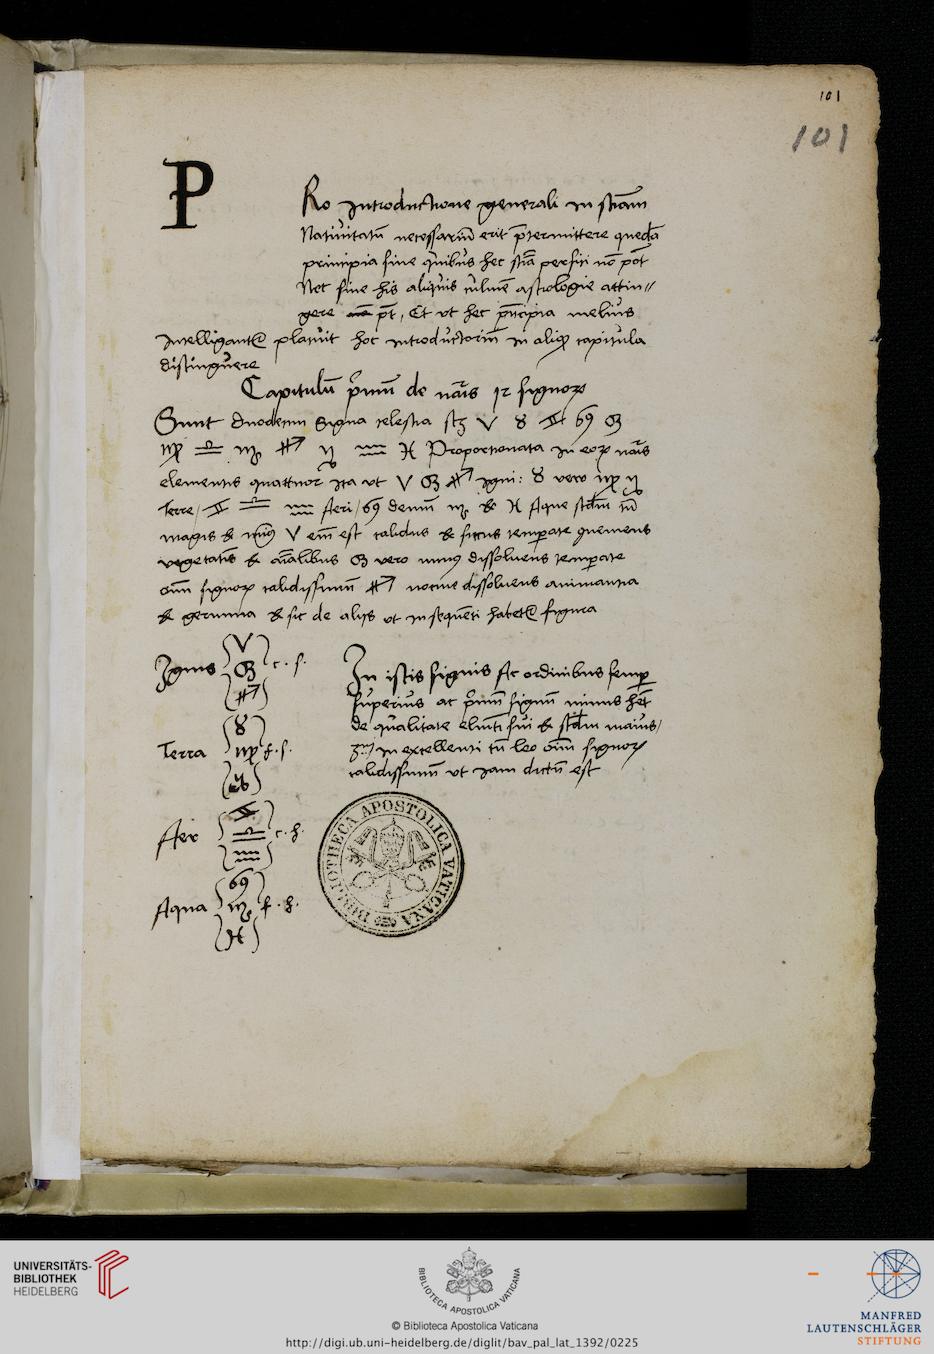 101
101
PRo introductione generali in sciam
Nativitatu necessariu erit ptermittere queda
principia sine quibus hec scia perfiti no pot
Nec sine his aliquis culme astrologie attin
gere pt, Et ut hec principia melius
intelligant placuit hoc introductoriu in aliq capitula
distinguere
Capitulu primu de nais 12 signor
Sunt duodecim signa celestia scz ♈ ♉ ♊ ♋ ♌
♍ ♎ ♏ ♐ ♑ ♒ ♓ Proportionata in eor nais
elementis quattuor ita ut ♈ ♌ ♐ igni: ♉ vero ♍ ♑
Terre/ ♊ ♎ ♒ Aeri/ ♋ demu ♏ & ♓ Aque scdm tn
magis & min9 ♈ em est calidus & siccus temperate
vegetatis & aialibus ♌ vero dissolvens temperate
oim signor calidissimum ♐ dissolvens animantia
& germina & sic de alijs ut in sequeti habet figura
Ignis ♈ ♌ ♐ c. s.
Terra ♉ ♍ ♑ f. s.
Aer ♊ ♎ ♒ c. h.
Aqua ♋ ♏ ♓ f. h.
In istis signis sic ordinibus semp
superius ac primu signum minus het
de qualitate elmti sui & scdm maius/
in excellenti tn leo oim signor
calidissimum ut iam dictu est
BIBLIOTHECA APOSTOLICA VATICANA
UNIVERSITÄTS-
BIBLIOTHEK
HEIDELBERG
BIBLIOTECA APOSTOLICA VATICANA
© Biblioteca Apostolica Vaticana
http://digi.ub.uni-heidelberg.de/diglit/bav_pal_lat_1392/0225
MANFRED
LAUTENSCHLÄGER
STIFTUNG